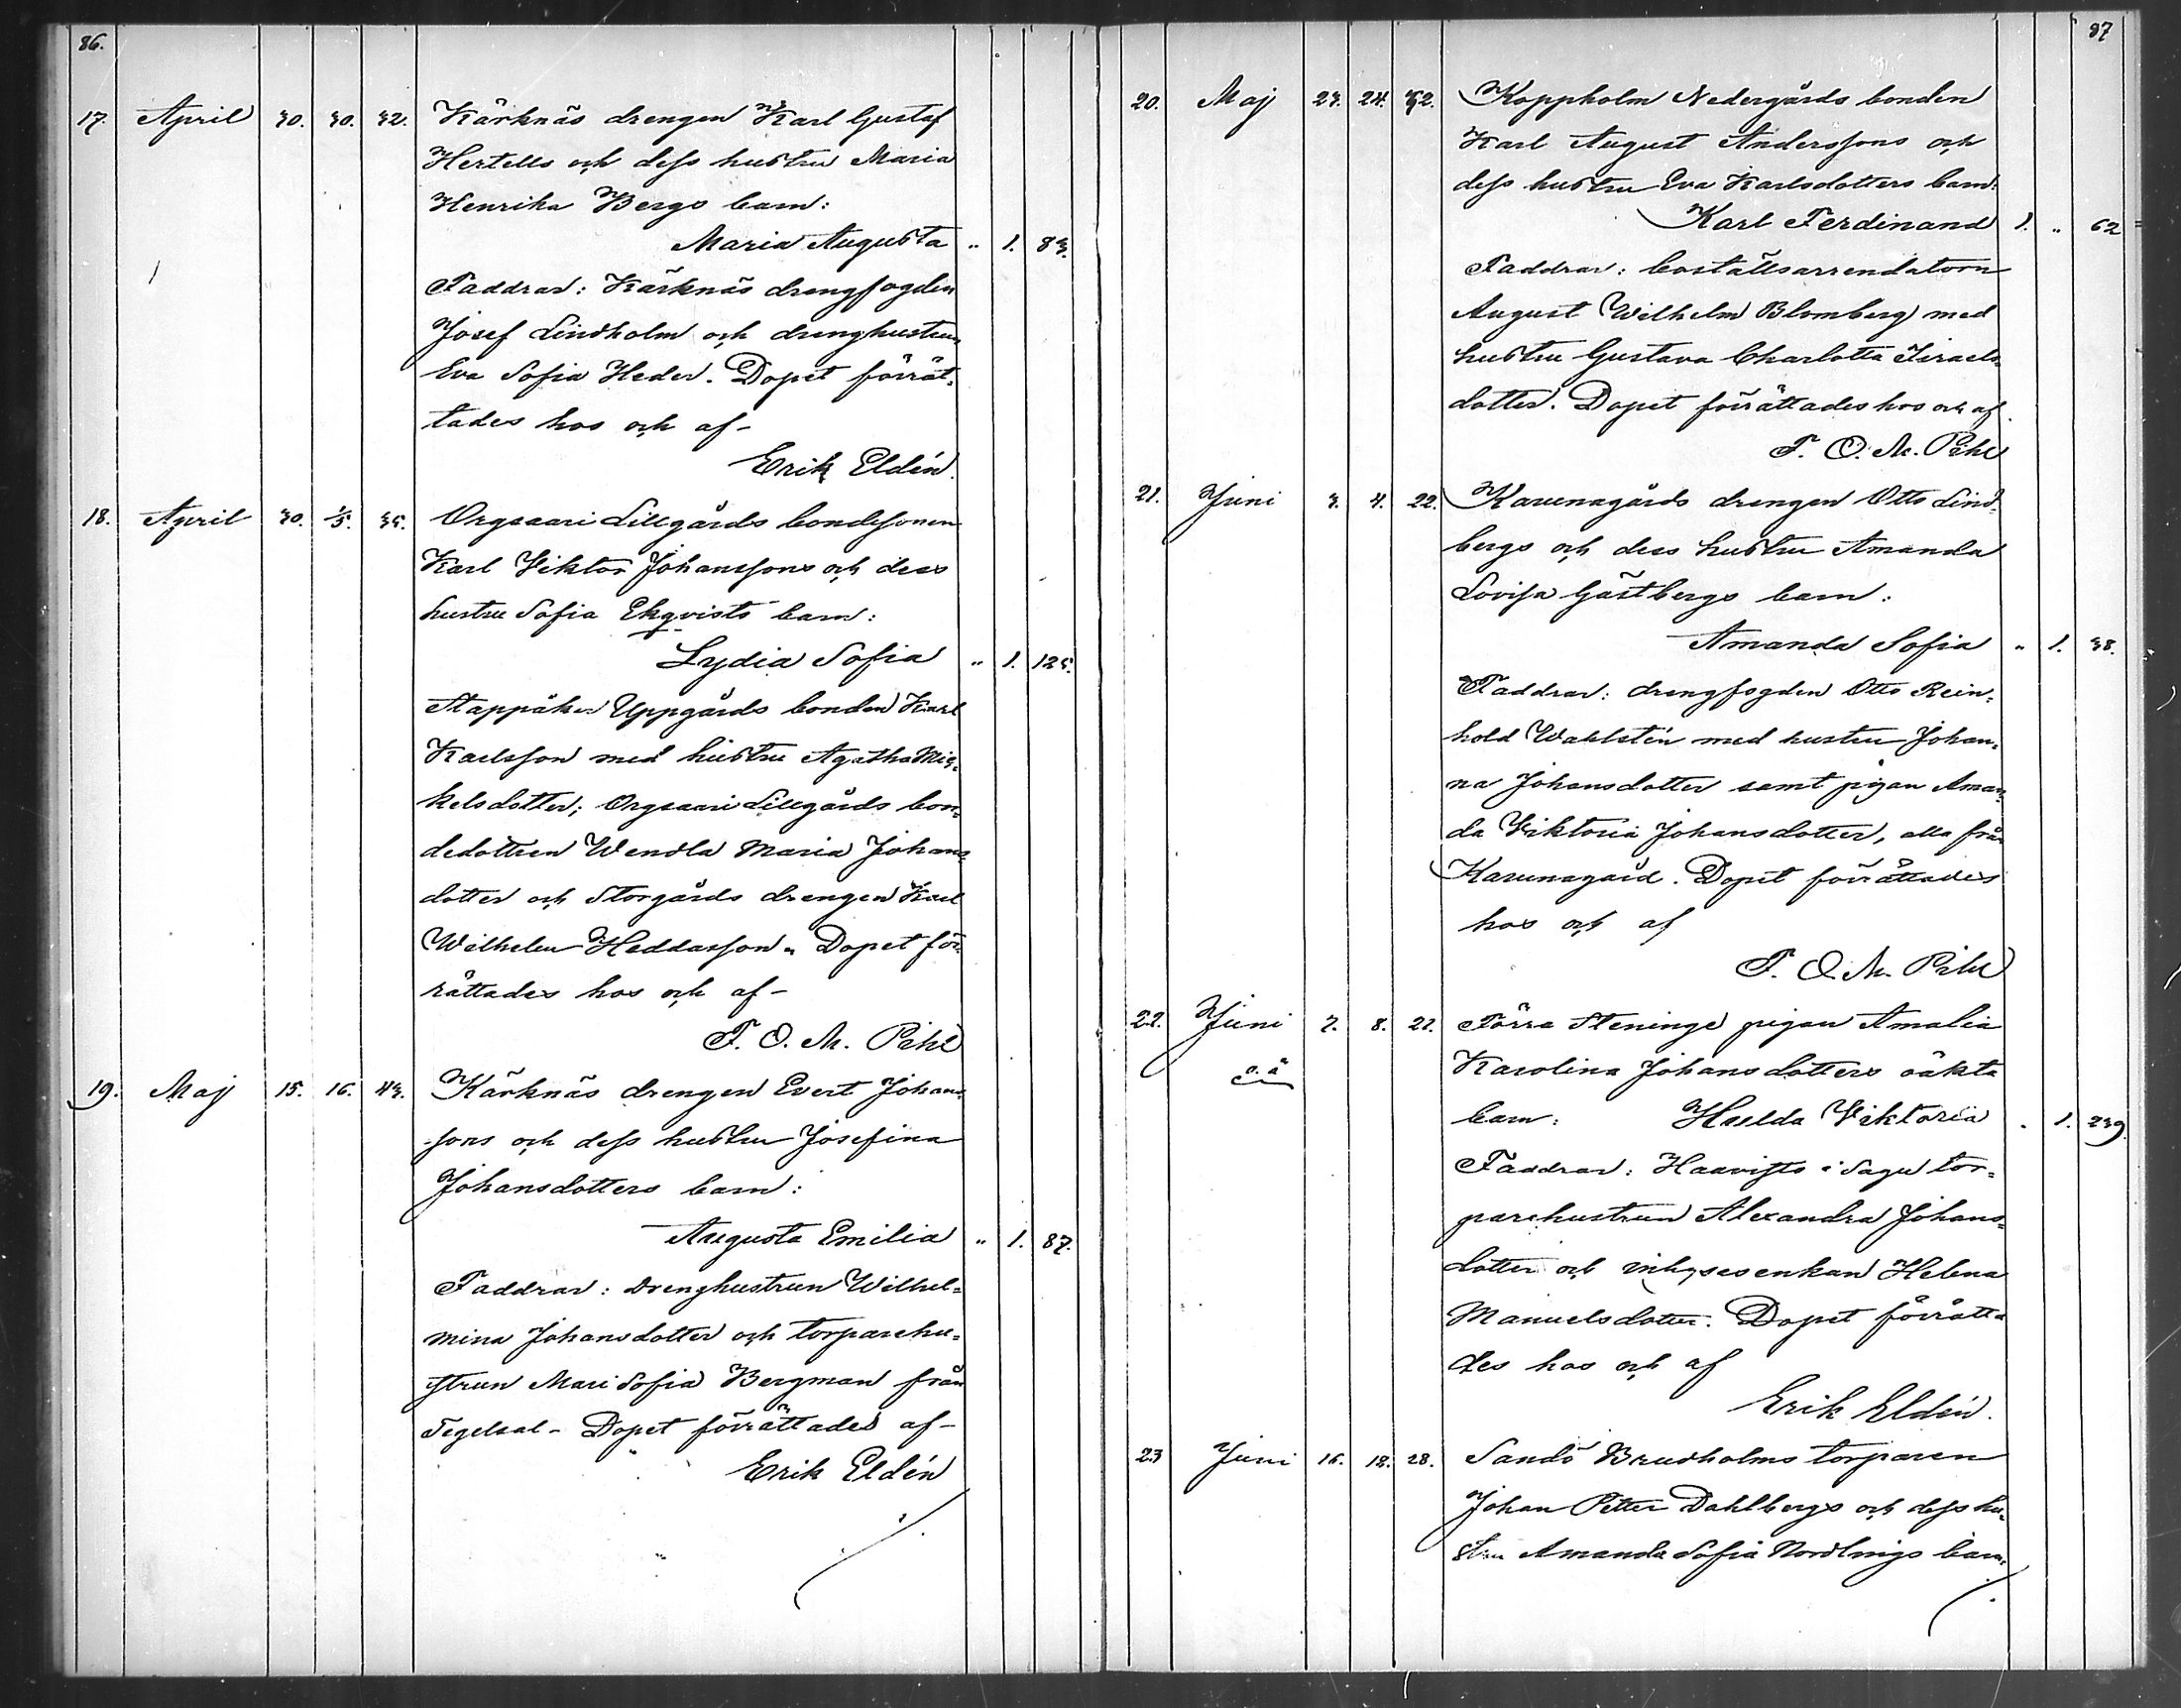 86.
17. April 30. 30. 32. Kärknäs drengen Karl Gustaf
Hertells och dess hustru Maria
Henrika Bergs barn:
Maria Augusta " 1. 83.
Faddrar: Kärknäs drengfogden
Josef Lindholm och drenghustrun
Eva Sofia Heder. Dopet förrät-
tades hos och af
Erik Eldén.
18. April 30. 1/5. 35. Orgsaari Lillgårds bondesonen
Karl Viktor Johanssons och dess
hustru Sofia Ekqvists barn:
Lydia Sofia " 1. 125.
Stappåker Uppgårds bonden Karl
Karlsson med hustru Agatha Mic-
kelsdotter; Orgsaari Lillgårds bon-
dedottren Wendla Maria Johans-
dotter och Storgårds drengen Karl
Wilhelm Heddasson. Dopet för-
rättades hos och af
F. O. M. Pihl
19. Maj 15. 16. 43. Kärknäs drengen Evert Johans-
sons och dess hustru Josefina
Johansdotters barn:
Augusta Emilia " 1. 87.
Faddrar: drenghustrun Wilhel-
mina Johansdotter och torparehu-
strun Mari Sofia Bergman från
Tegelsal. Dopet förrättades af
Erik Eldén
87
20. Maj 23. 24. 32. Koppholm Nedergårds bonden
Karl August Anderssons och
dess hustru Eva Karlsdotters barn:
Karl Ferdinand 1. " 62
Faddrar: boställsarrendatorn
August Wilhelm Blomberg med
hustru Gustava Charlotta Israels-
dotter. Dopet förrättades hos och af
F. O. M. Pihl
21. Juni 3. 4. 22. Karunagårds drengen Otto Lind-
bergs och dess hustru Amanda
Lovisa Gästbergs barn:
Amanda Sofia " 1. 38.
Faddrar: drengfogden Otto Rein-
hold Wahlstén med hustru Johan-
na Johansdotter samt pigan Aman-
da Viktoria Johansdotter, alla från
Karunagård. Dopet förrättades
hos och af
F. O. M. Pihl
22. Juni 7. 8. 21. Förra Steninge pigan Amalia
o. ä
Karolina Johansdotters oäkta
barn: Hulda Viktoria " 1. 239.
Faddrar: Haavisto i Sagu tor-
parehustrun Alexandra Johans-
dotter och inhysesenkan Helena
Manuelsdotter. Dopet förrätta-
des hos och af
Erik Eldén.
23 Juni 16. 18. 28. Sandö Brusholms torparen
Johan Petter Dahlbergs och dess hu-
stru Amanda Sofia Nordlings barn: